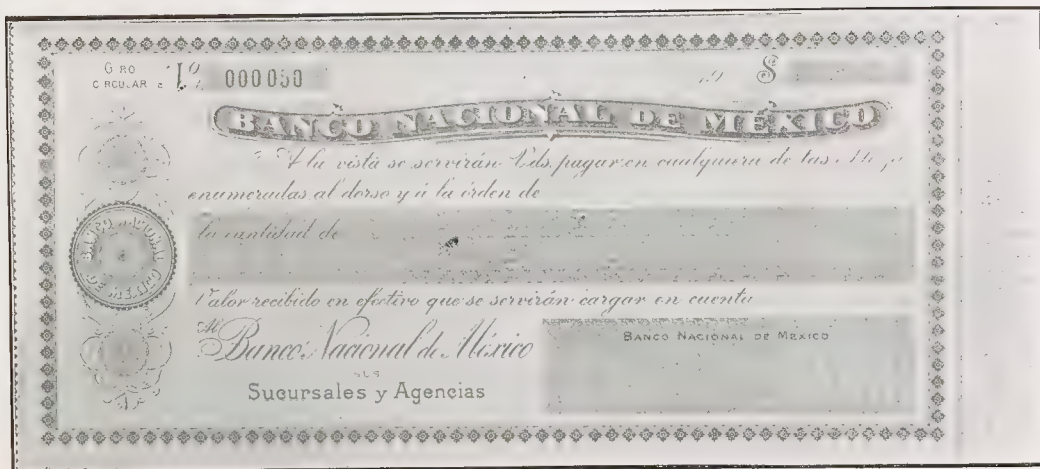 GIRO
CIRCULAR No. 000050 19 $
BANCO NACIONAL DE MÉXICO
A la vista se servirán Vds. pagar en cualquiera de las
enumeradas al dorso y á la órden de
la cantidad de
Valor recibido en efectivo que se servirán cargar en cuenta
Al Banco Nacional de México
SUS
Sucursales y Agencias
BANCO NACIONAL DE MEXICO
BANCO NACIONAL DE MEXICO